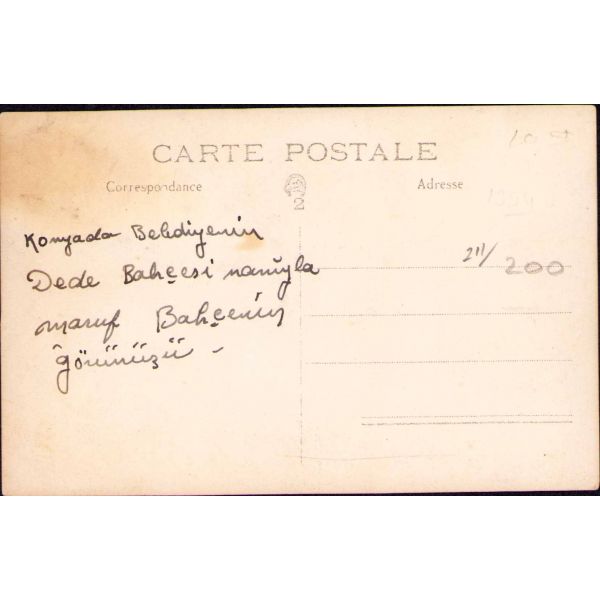 CARTE POSTALE
Correspondance
Adresse
2
Konyada Belediyenin
Dede Bahçesi namıyla
maruf Bahçenin
görünüzü -
211/
200